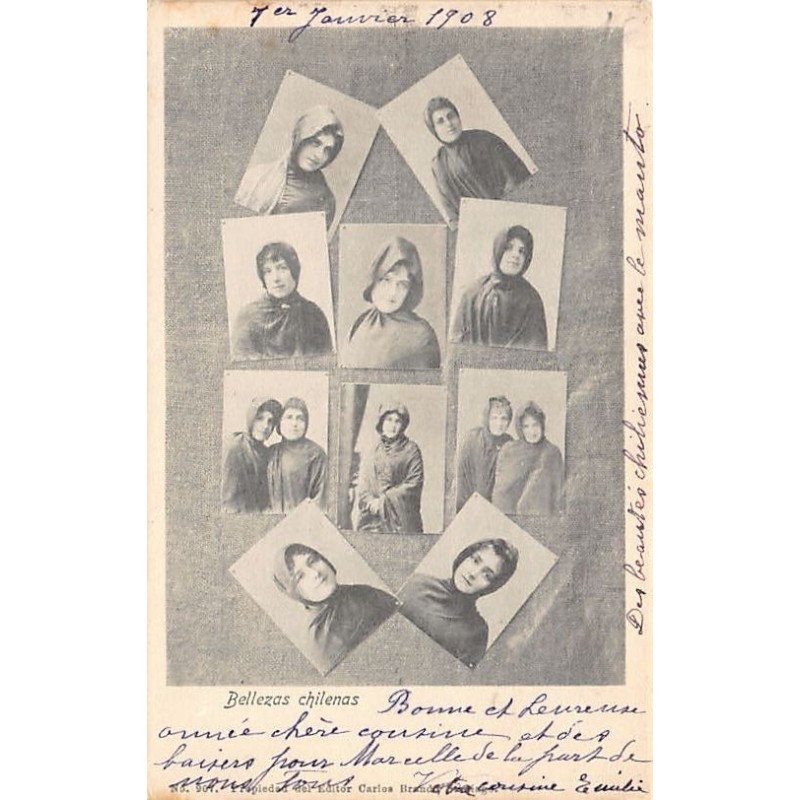 1er Janvier 1908
Des beautés chiliennes avec le manto.
Bellezas chilenas
Bonne et heureuse
année chère cousine et des
baisers pour Marcelle de la part de
nous tous Vtre cousine Emilie
No. 907. Propiedad del Editor Carlos Brandt, Santiago.